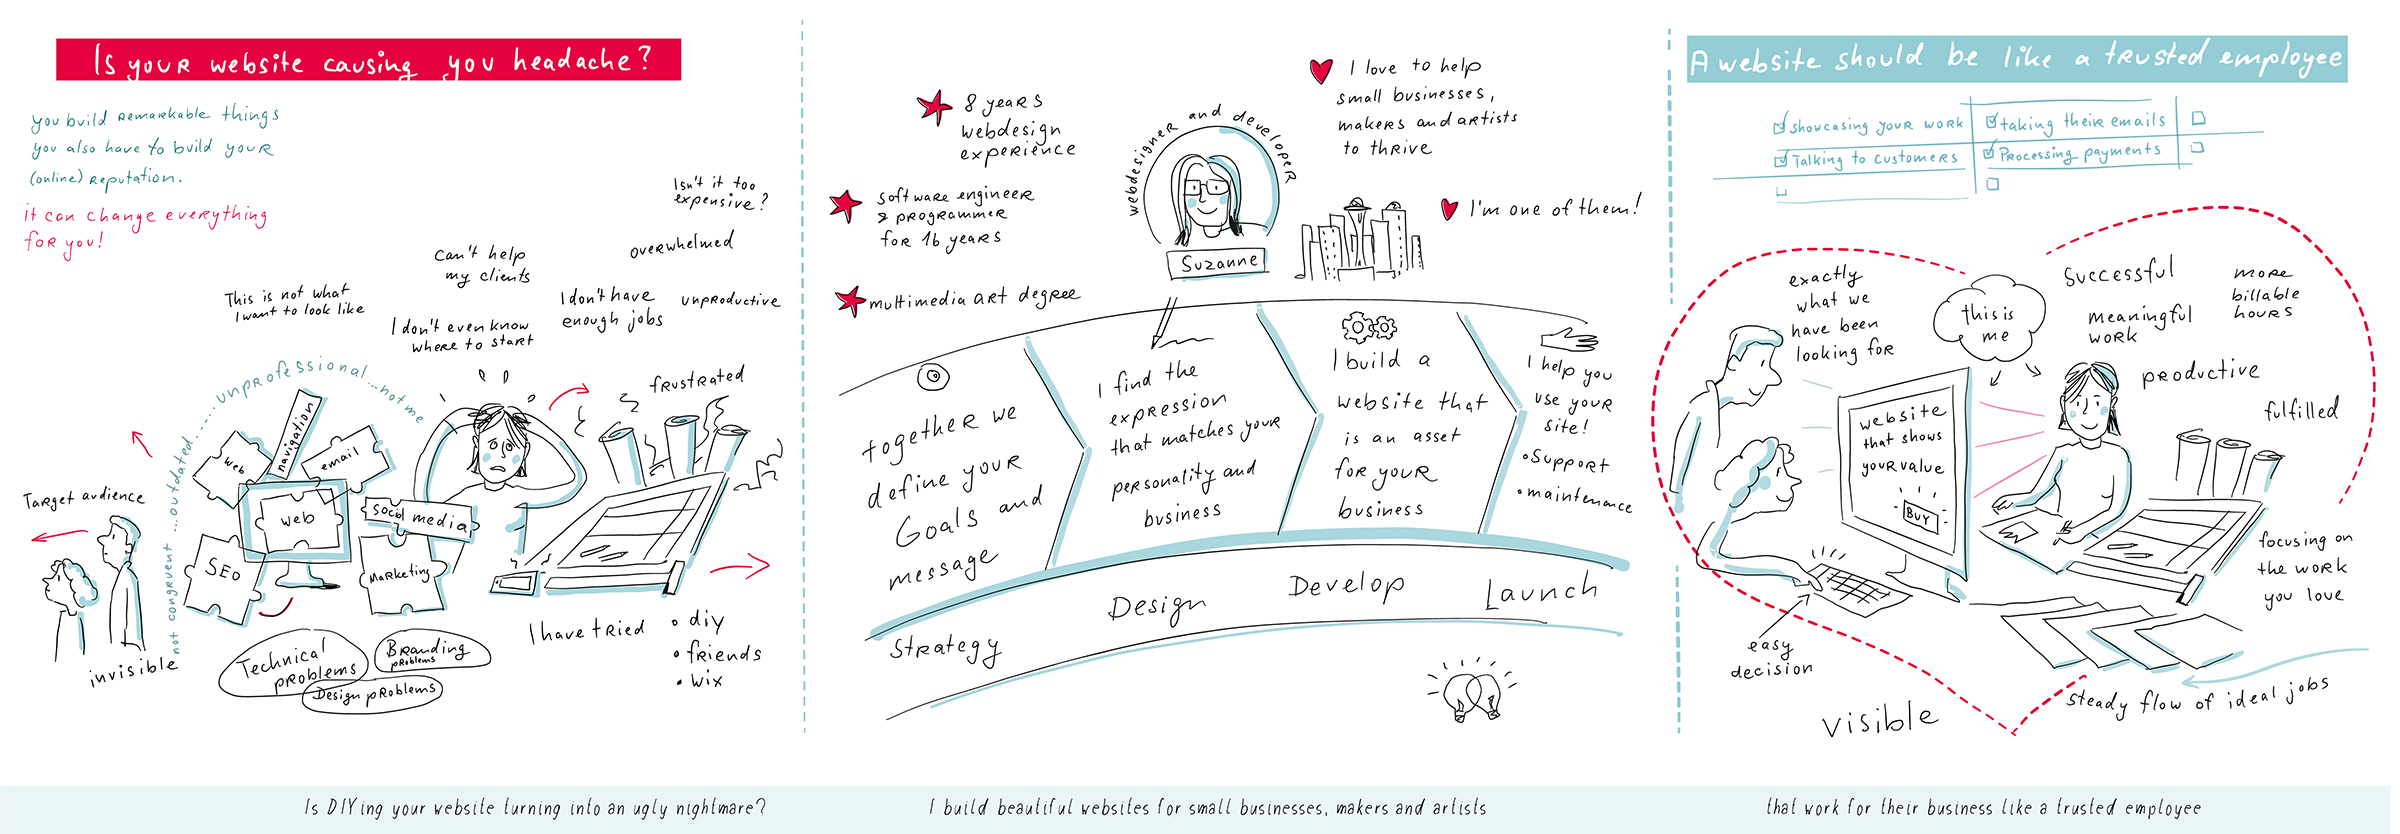 Is your website causing you headache?
you build remarkable things
you also have to build your
(online) reputation.
it can change everything
for you!
Isn't it too
expensive?
overwhelmed
Can't help
my clients
This is not what
I want to look like
I don't have
enough jobs
unproductive
I don't even know
where to start
frustrated
not congruent ... outdated ..... unprofessional ... not me
navigation
web
email
web
social media
SEO
Marketing
Target audience
invisible
Technical
problems
Branding
problems
Design problems
I have tried
• diy
• friends
• wix
8 years
webdesign
experience
software engineer
& programmer
for 16 years
multimedia art degree
webdesigner and developer
Suzanne
I love to help
small businesses,
makers and artists
to thrive
I'm one of them!
together we
define your
Goals and
message
I find the
expression
that matches your
personality and
business
I build a
website that
is an asset
for your
business
I help you
use your
site!
• support
• maintenance
Strategy
Design
Develop
Launch
A website should be like a trusted employee
showcasing your work
taking their emails
Talking to customers
Processing payments
exactly
what we
have been
looking for
this is
me
successful
more
billable
hours
meaningful
work
productive
fulfilled
website
that shows
your value
BUY
focusing on
the work
you love
easy
decision
visible
steady flow of ideal jobs
Is DIYing your website turning into an ugly nightmare?
I build beautiful websites for small businesses, makers and artists
that work for their business like a trusted employee